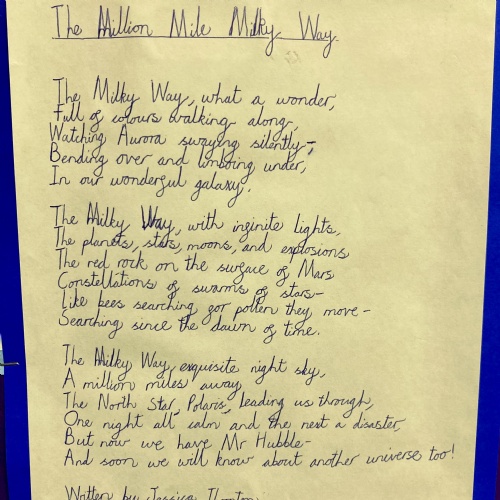 The Million Mile Milky Way.
The Milky Way, what a wonder,
Full of colours walking along,
Watching Aurora swaying silently-,
Bending over and limboing under,
In our wonderful galaxy.
The Milky Way, with infinite lights,
The planets, stars, moons, and explosions,
The red rock on the surface of Mars
Constellations of swarms of stars-
Like bees searching for pollen they move-
Searching since the dawn of time.
The Milky Way, exquisite night sky,
A million miles away
The North Star, Polaris, leading us through,
One night all calm and the next a disaster,
But now we have Mr Hubble-
And soon we will know about another universe too!
Written by Jessica